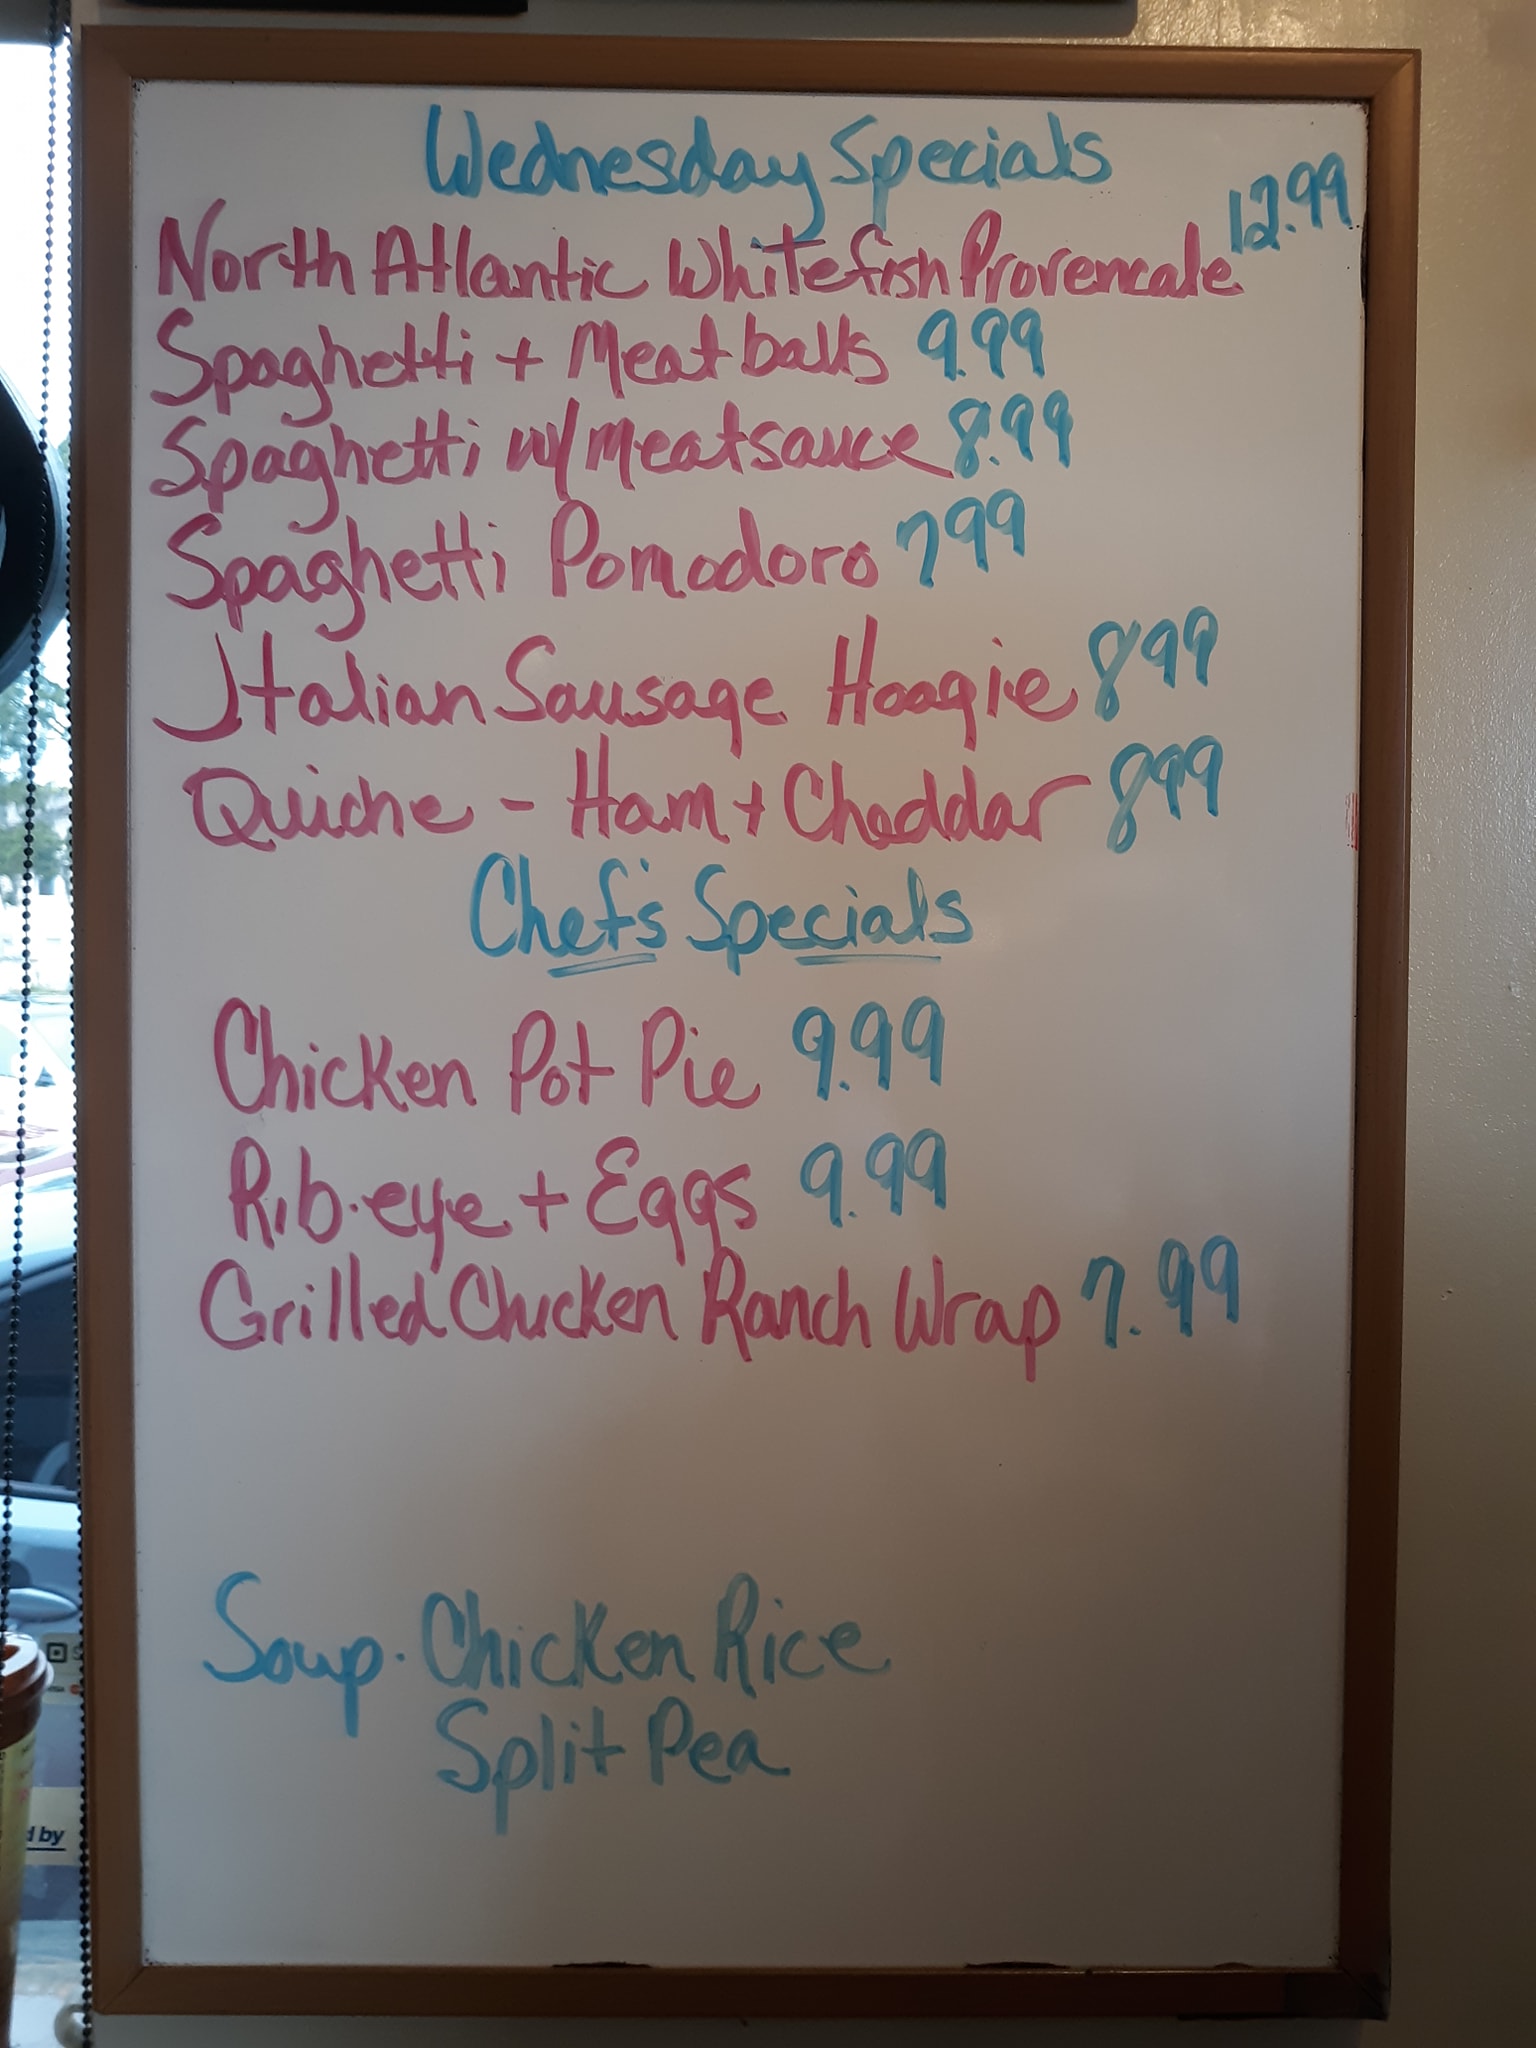 Wednesday Specials
North Atlantic Whitefish Provencale 12.99
Spaghetti + Meatballs 9.99
Spaghetti w/ meatsauce 8.99
Spaghetti Pomodoro 7.99
Italian Sausage Hoagie 8.99
Quiche - Ham + Cheddar 8.99
Chef's Specials
Chicken Pot Pie 9.99
Rib.eye + Eggs 9.99
Grilled Chicken Ranch Wrap 7.99
Soup. Chicken Rice
Split Pea
d by